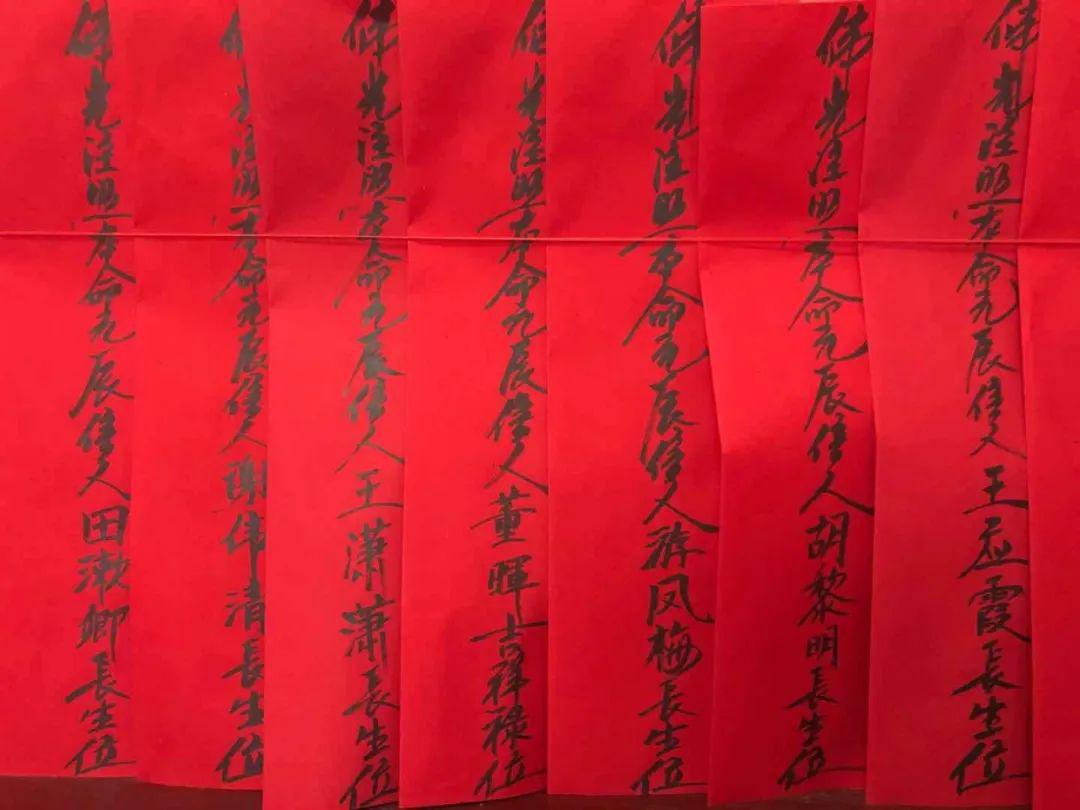 佛光注照本命元辰信人王应霞長生位
佛光注照本命元辰信人胡黎明長生位
佛光注照本命元辰信人凤梅長生位
佛光注照本命元辰信人董暉吉祥禄位
佛光注照本命元辰信人王潇萧長生位
佛光注照本命元辰信人谢伟清長生位
佛光注照本命元辰信人田漱卿長生位